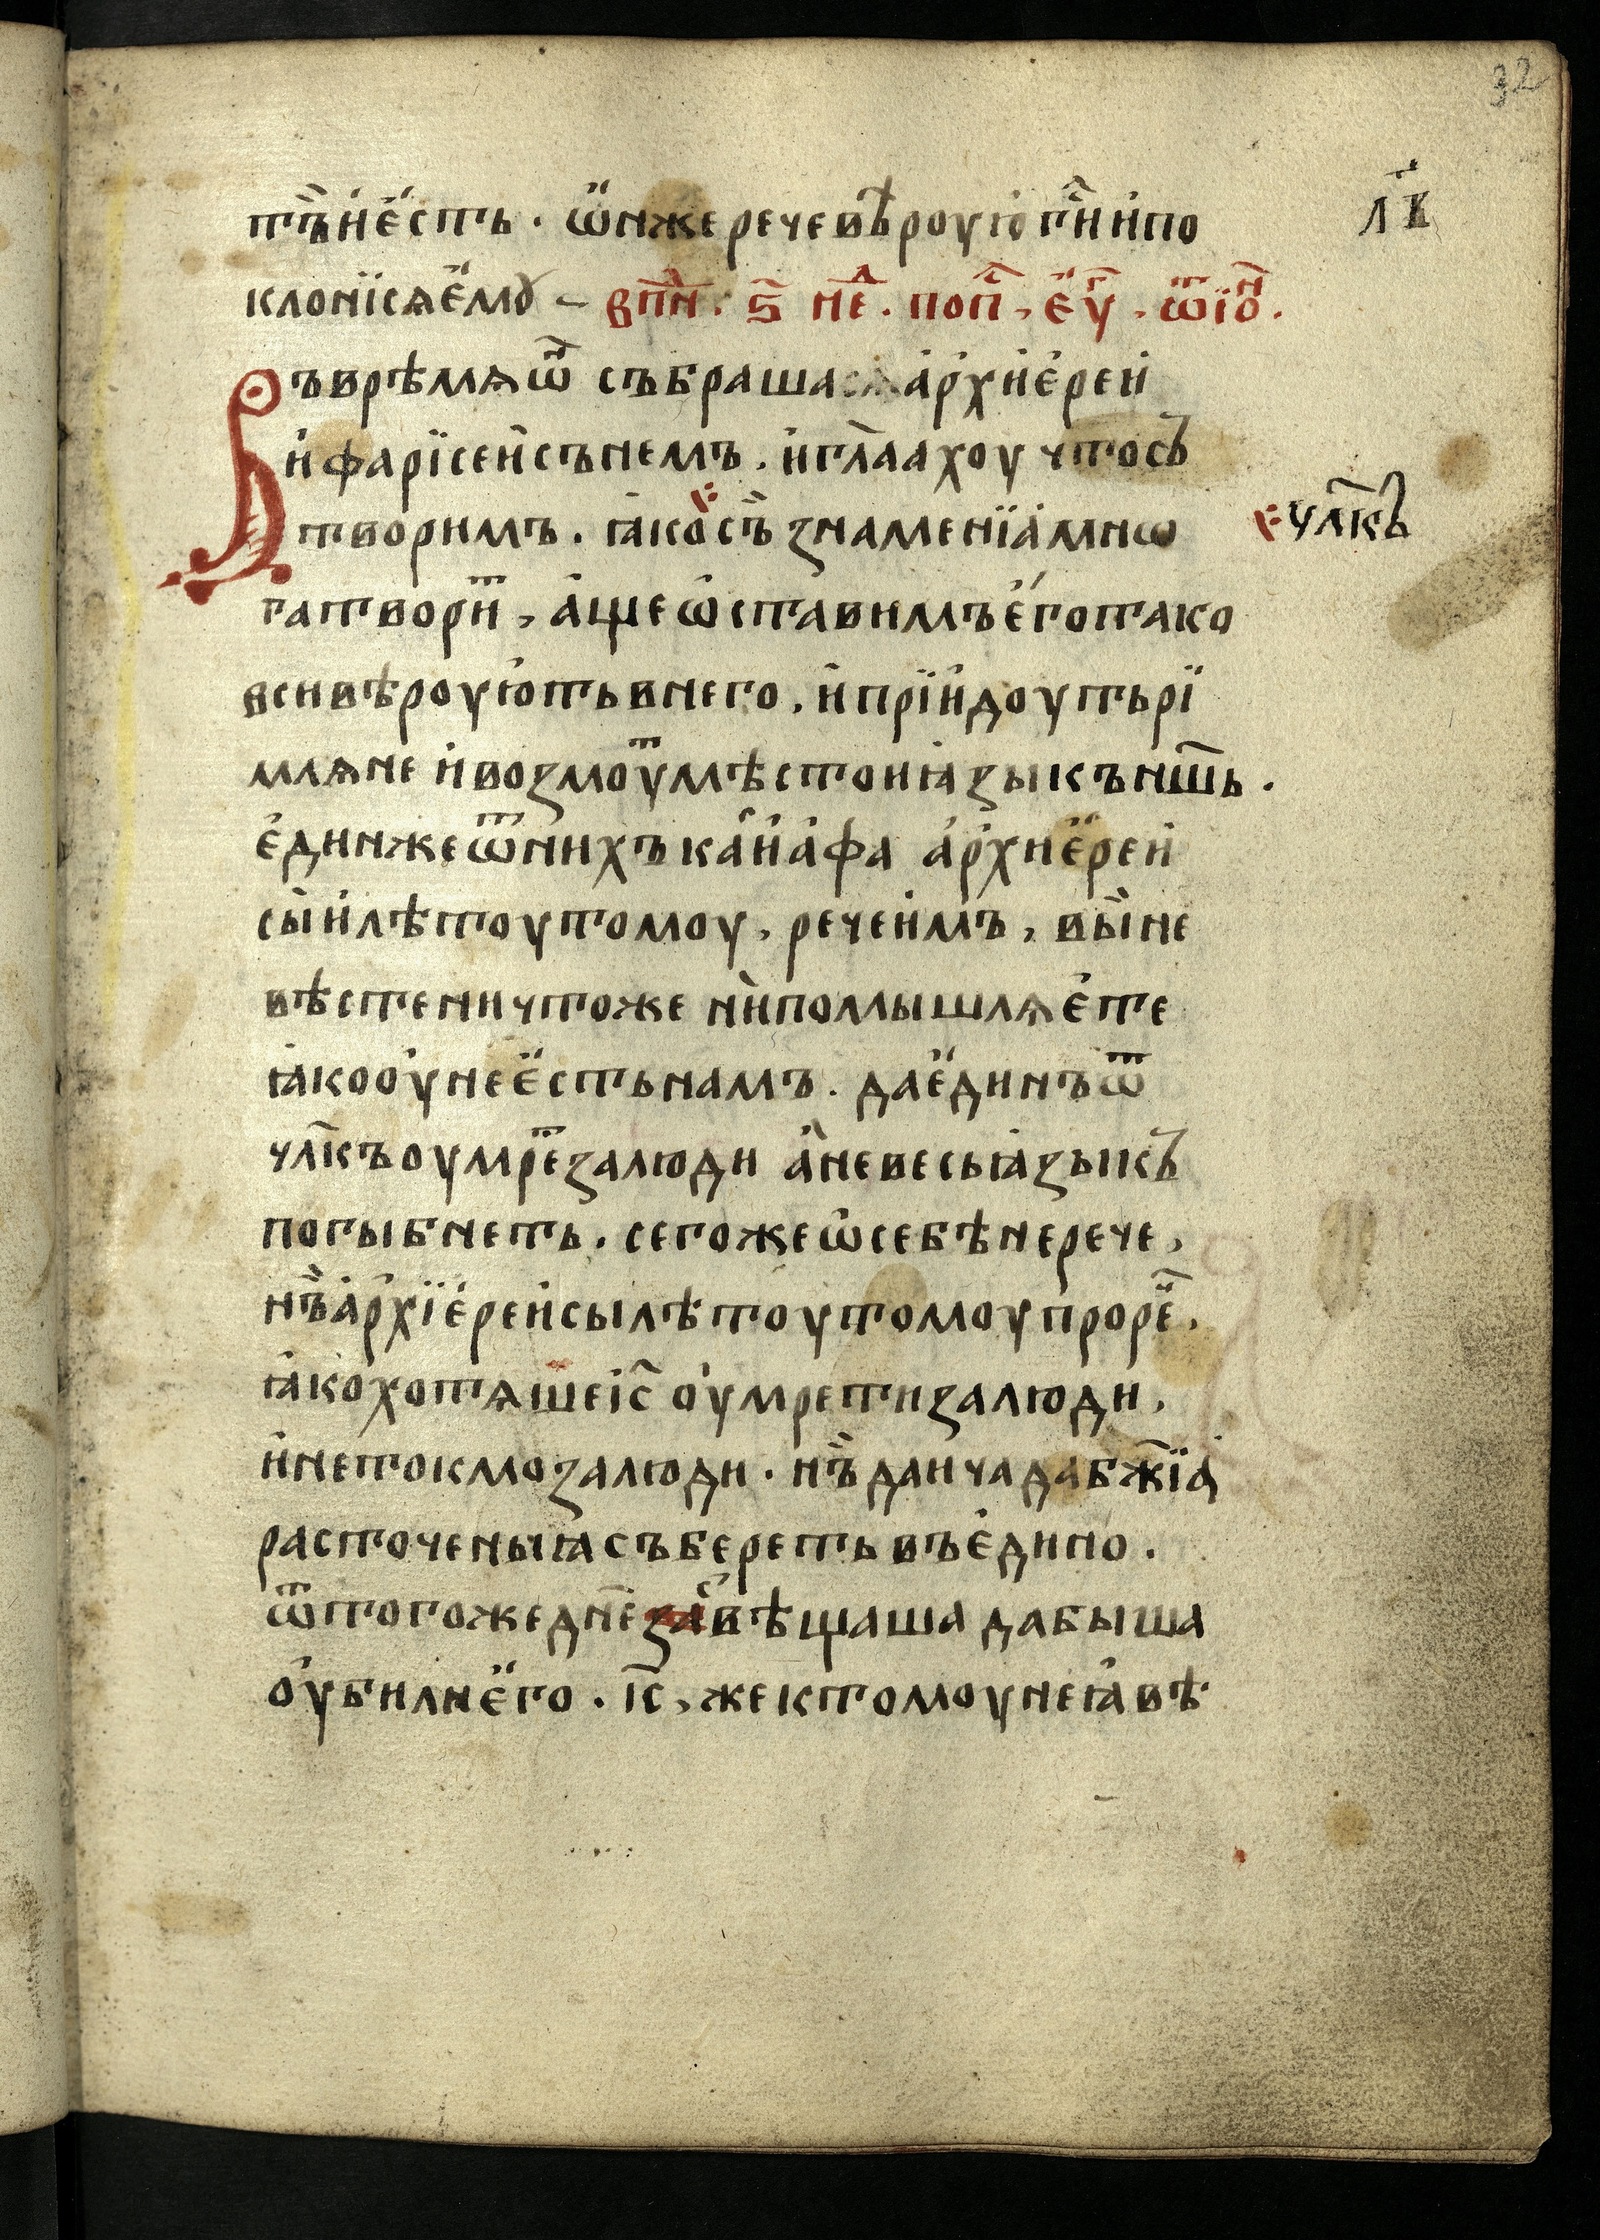 32
л҃в
тъ̀ и҆ е҆́сть · ѡ҆́нже рече вѣ́роую г҃и и҆ по
клонїсѧ е҆́мꙋ – в пн҃д · ѕ҃ не҃д · по п҃с · е҆ѵ҃г · ѿ і҆о҃н ·
Въ врѣмѧ ѡ҆́н събрашасѧ а҆рхи҆е҆реи҆
и҆ фарїсеи҆ сънемъ · и҆ гл҃аахоу что съ
творимъ · ꙗ҆ко съ̀ знаменїа҆ мнѡ
чл҃къ
га твори҃т , а҆ще ѡ҆ставимъ е҆го тако
вси вѣроую҆ть в него · и҆ прїи҆доуть рі
млѧне и҆ возмоу҃т мѣсто и ꙗ҆зыкъ нш҃ь ·
е҆динже ѿ нихъ каи҆а҆фа а҆рхие҆реи҆
сы̀и лѣтоу томоу , рече и҆мъ , вы̀ не
вѣсте ничтоже ни̇ помышлѧе҆те
ꙗ҆ко оу҆не е҆сть намъ · да е҆динъ ѿ
чл҃къ оумре҃т за люди а҆ не весь ꙗ҆зыкъ
погыбнеть · сегоже ѡ҆ себѣ не рече ,
нъ̀ а҆рхїе҆реи҆ сы лѣтоу томоу проре҃ч ,
ꙗ҆ко хотѧше і҃с оу҆мрети за люди ,
и҆ не токмо за люди · нъ̀ да и҆ чада бж҃їа҆
расточеныꙗ събереть въ е҆дино ·
ѿ тогоже дн҃е завѣщаша да быша
оу҆били е҆го · і҃с , же к томоу не ꙗ҆вѣ